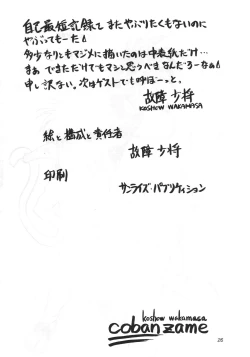 自己最短記録を またやぶりたくもないのに
やぶってもーた△
多少なりともマジメに描いたのは中表紙だけ…
まぁ できただけでもマシと思うべきなんだろーなぁ△
申し訳ない。次はゲストでも呼ぼーっと。
故障少将
KOSHOW WAKAMASA
絵と構成と責任者
故障少将
印刷
サンライズ・パブリケィション
koshow wakamasa
cobanzame
25